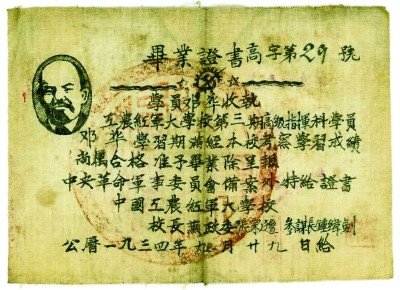 畢業證書高字第29號
學員邓华收執
工農紅軍大學第三期高級指揮科學員
邓华學習期滿經本校考察學習成績
尚屬合格准予畢業除報
中央革命軍事委員會備案外特給證書
中國工農紅軍大學校
校長 政委 參謀長鍾緯劍
公曆一九三四年九月廿九日給